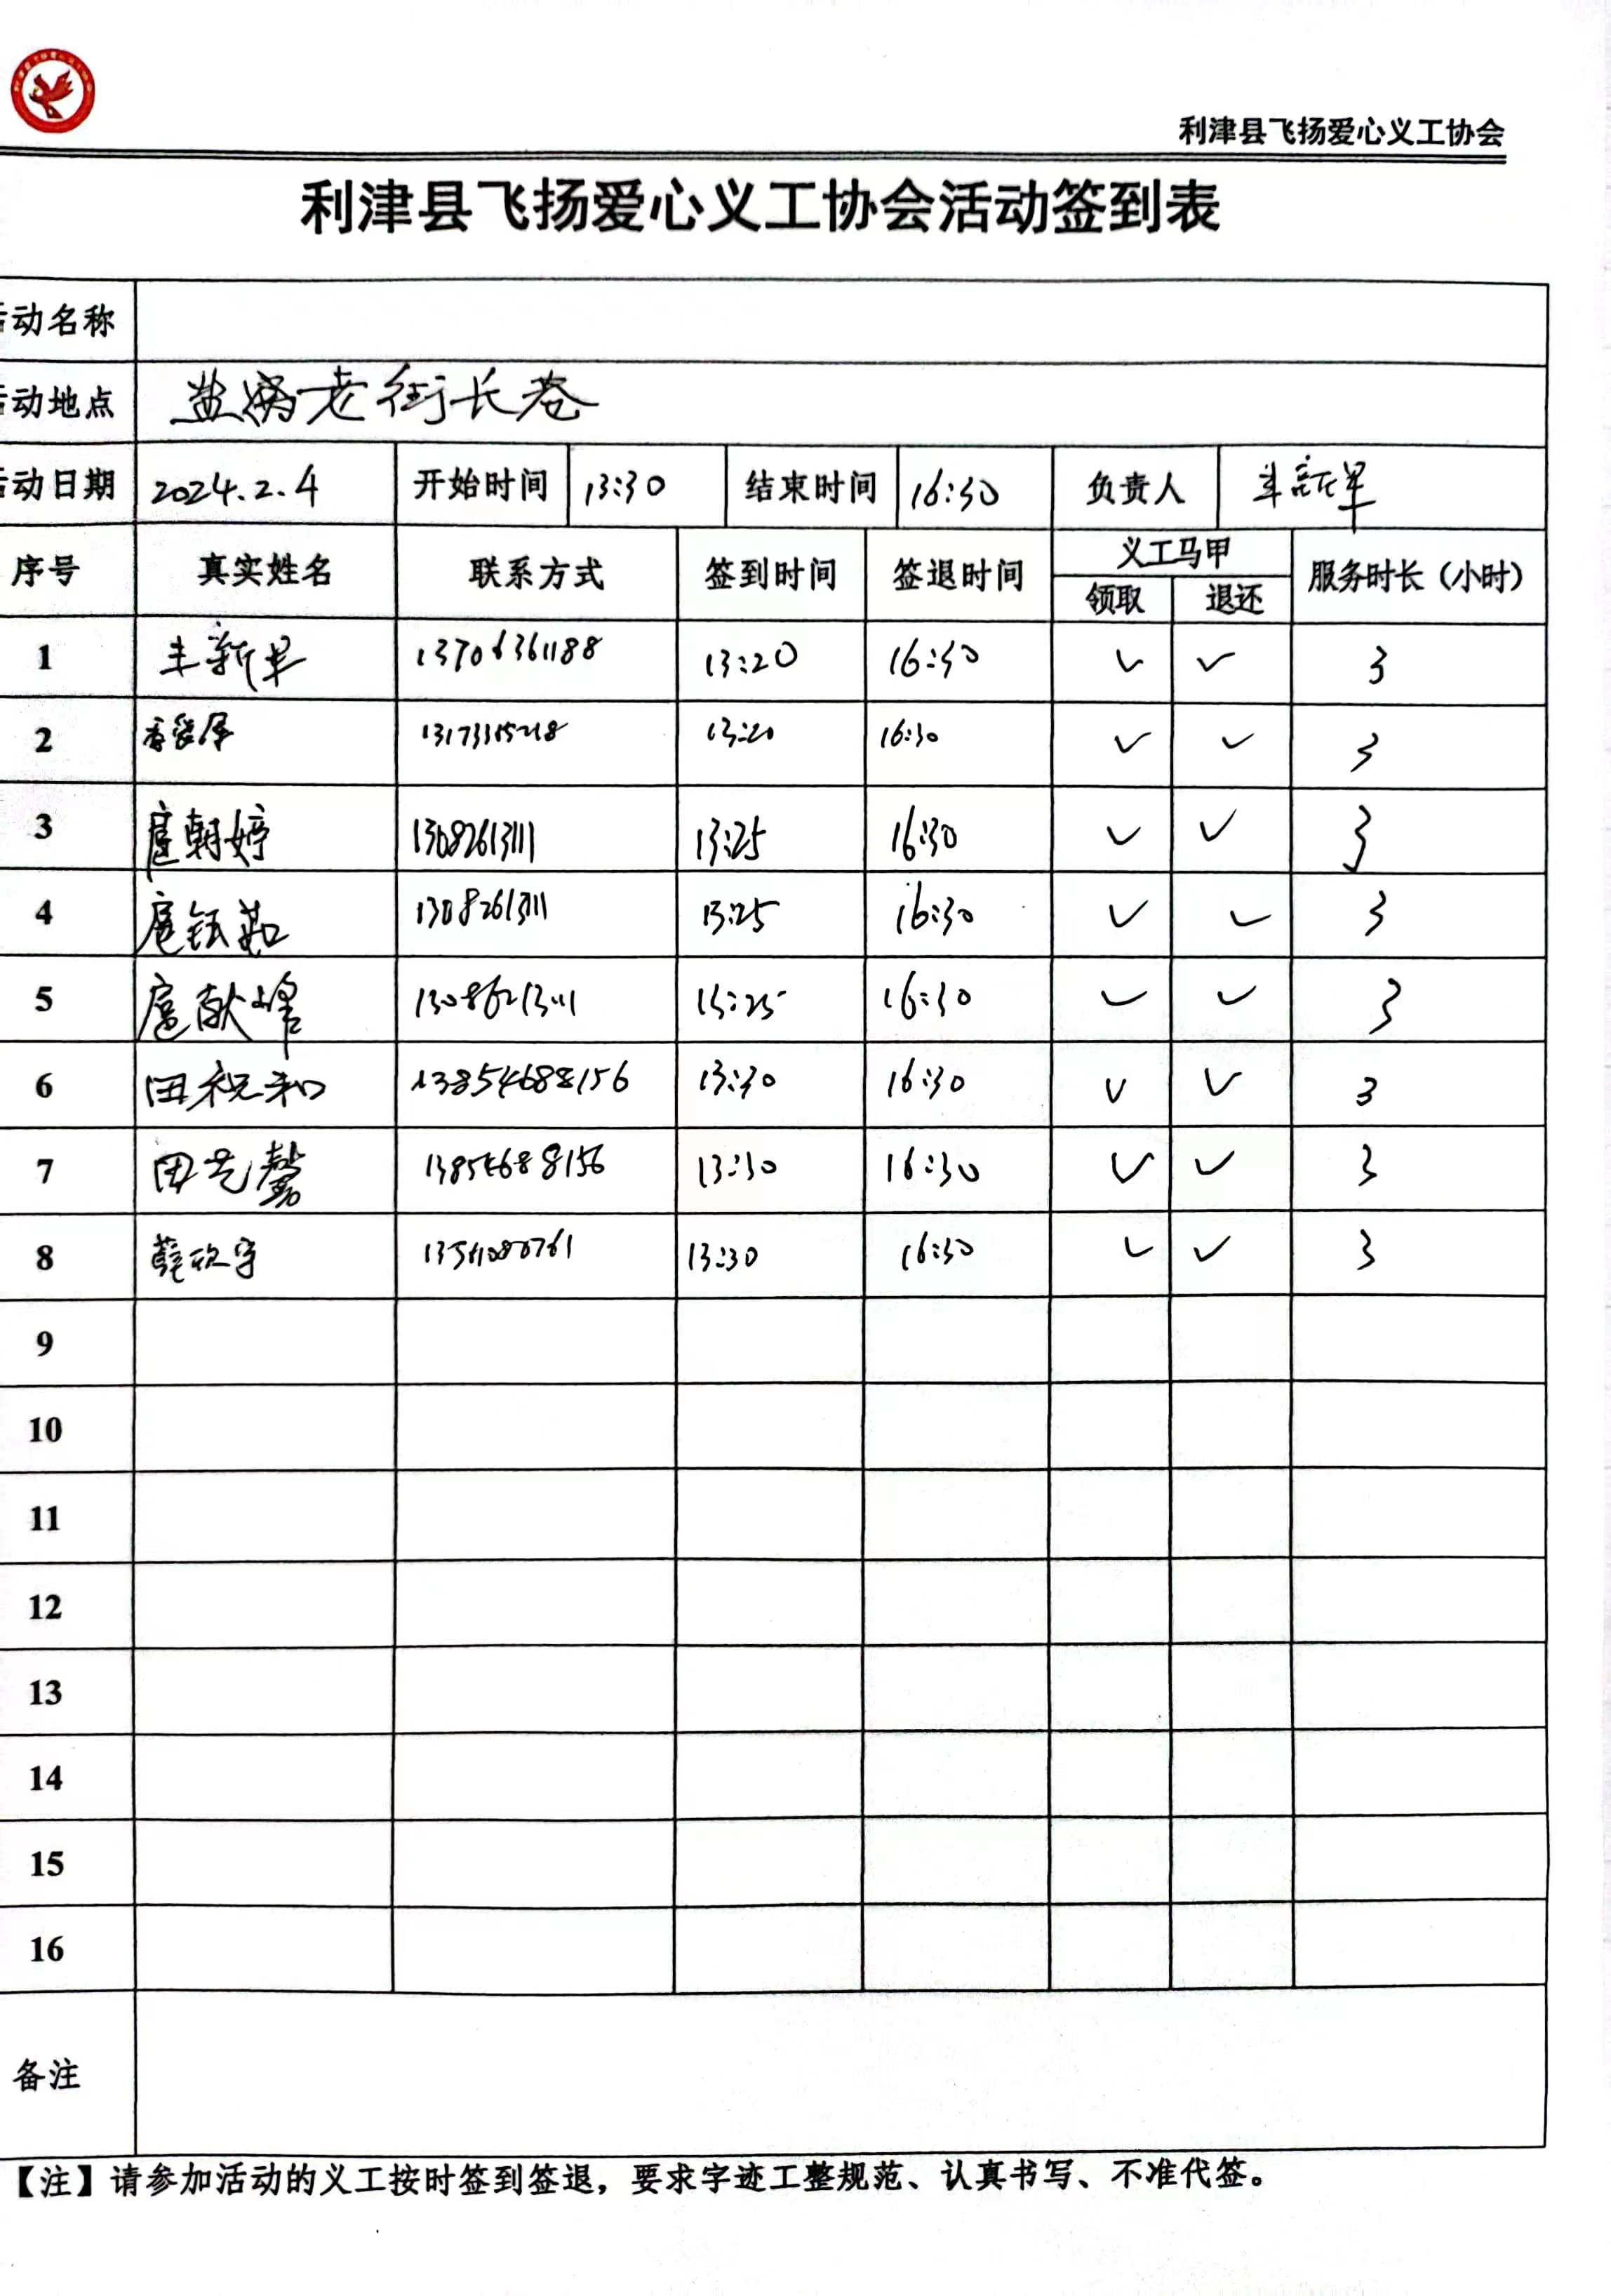 利津县飞扬爱心义工协会
利津县飞扬爱心义工协会活动签到表
动名称
动地点 盐窝老街长巷
动日期 2024.2.4 开始时间 13:30 结束时间 16:30 负责人
序号 真实姓名 联系方式 签到时间 签退时间 义工马甲 服务时长（小时）
领取 退还
1 13706361188 13:20 16:30 ✓ ✓ 3
2 13:20 16:30 ✓ ✓ 3
3 扈朝婷 13082613111 13:25 16:30 ✓ ✓ 3
4 13082613111 13:25 16:30 ✓ ✓ 3
5 扈献峰 13:25 16:30 ✓ ✓ 3
6 田祝和 13854688156 13:30 16:30 ✓ ✓ 3
7 13854688156 13:30 16:30 ✓ ✓ 3
8 薛欣宇 13:30 16:30 ✓ ✓ 3
9
10
11
12
13
14
15
16
备注
【注】请参加活动的义工按时签到签退，要求字迹工整规范、认真书写、不准代签。